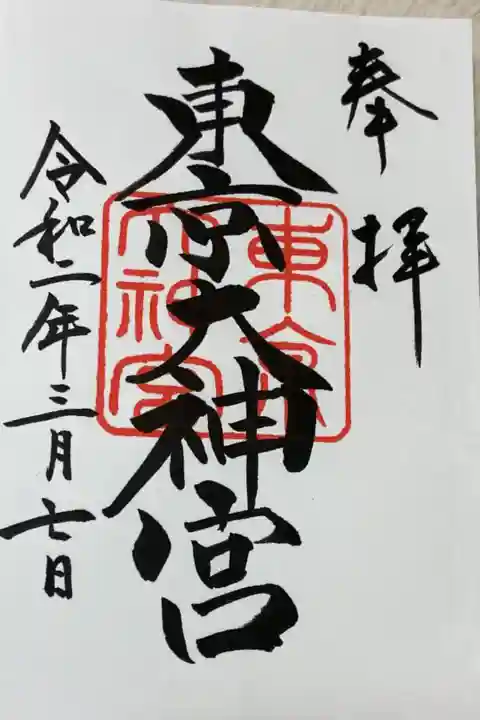 奉拝
東京大神宮
東京
大神宮
令和二年三月七日